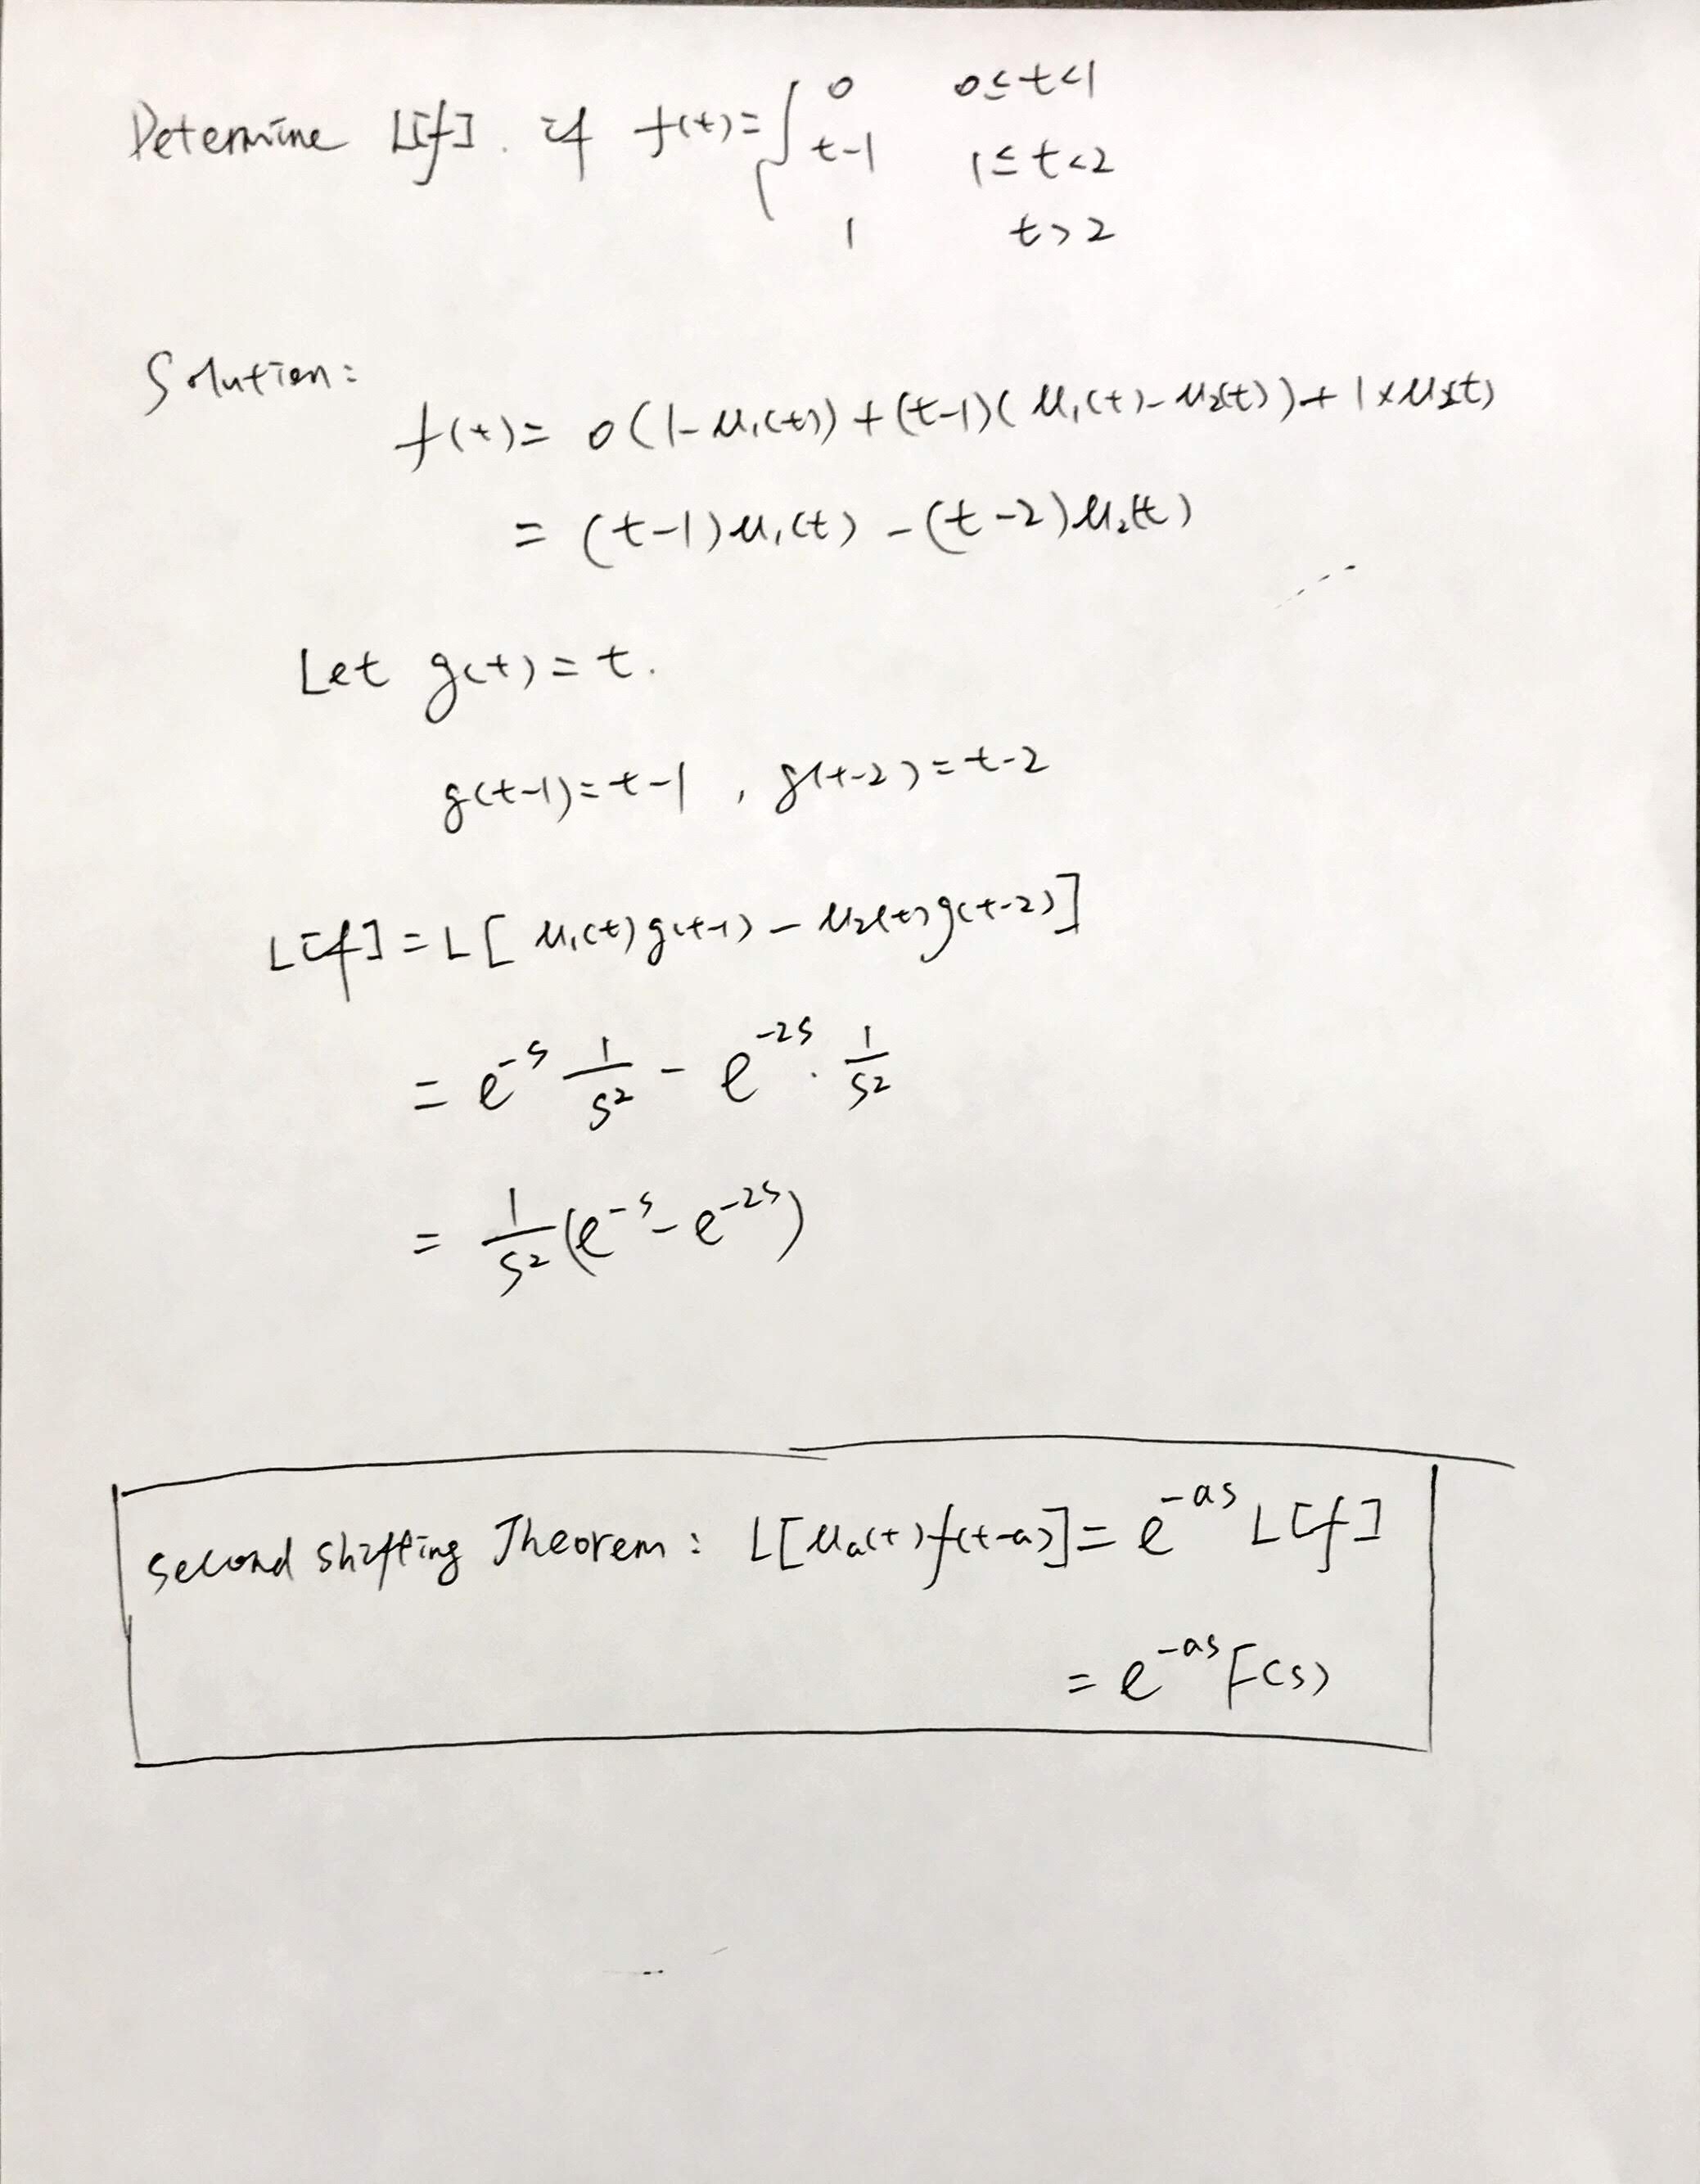 Determine L[f]. if f(t)= { 0 0≤t<1
t-1 1≤t<2
1 t>2
Solution:
f(t)= 0(1-u₁(t))+(t-1)(u₁(t)-u₂(t))+1×u₂(t)
= (t-1)u₁(t) -(t-2)u₂(t)
Let g(t)=t.
g(t-1)=t-1 , g(t-2)=t-2
L[f]=L[ u₁(t)g(t-1) - u₂(t)g(t-2)]
= e^-s 1/s² - e^-2s · 1/s²
= 1/s²(e^-s - e^-2s)
second shifting Theorem: L[uₐ(t)f(t-a)]= e^-as L[f]
= e^-as F(s)